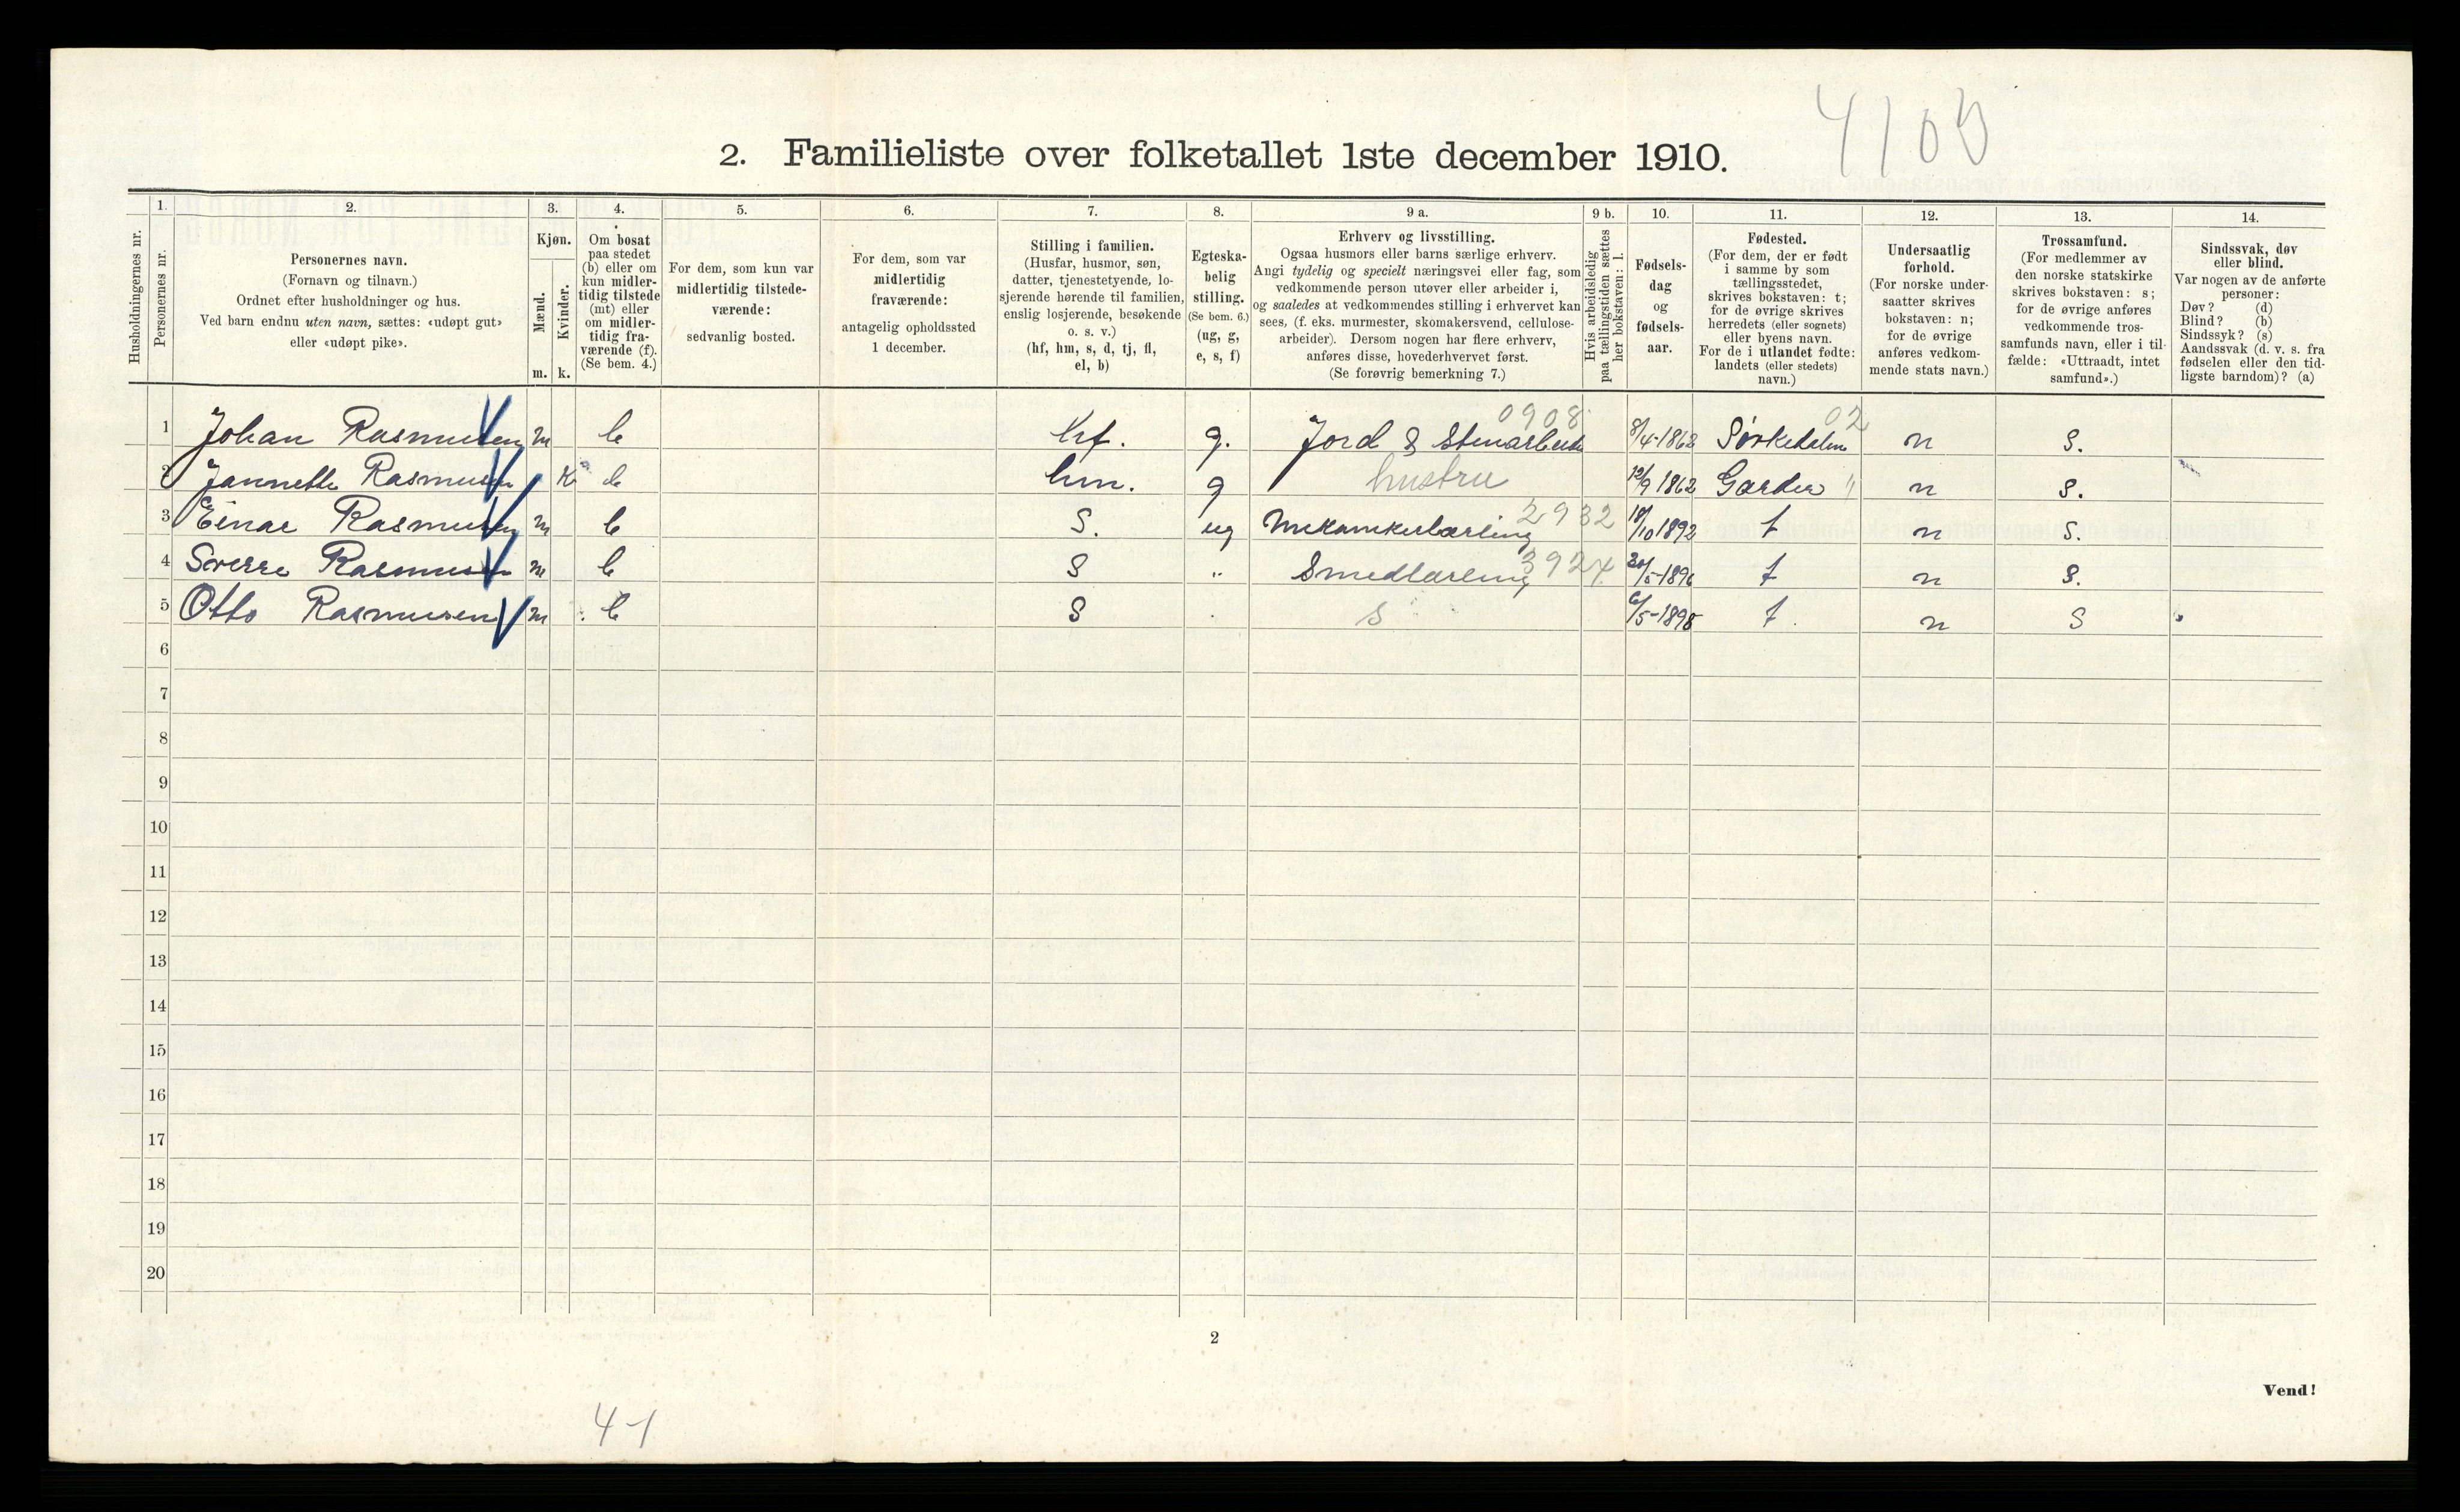 4100
2. Familieliste over folketallet 1ste december 1910.
Husholdningernes nr.
1. Personernes nr.
2. Personernes navn. (Fornavn og tilnavn.) Ordnet efter husholdninger og hus. Ved barn endnu uten navn, sættes: «udøpt gut» eller «udøpt pike».
3. Kjøn. Mænd. m. Kvinder. k.
4. Om bosat paa stedet (b) eller om kun midlertidig tilstede (mt) eller om midlertidig fraværende (f). (Se bem. 4.)
5. For dem, som kun var midlertidig tilstedeværende: sedvanlig bosted.
6. For dem, som var midlertidig fraværende: antagelig opholdssted 1 december.
7. Stilling i familien. (Husfar, husmor, søn, datter, tjenestetyende, losjerende hørende til familien, enslig losjerende, besøkende o. s. v.) (hf, hm, s, d, tj, fl, el, b)
8. Egteskabelig stilling. (Se bem. 6.) (ug, g, e, s, f)
9 a. Erhverv og livsstilling. Ogsaa husmors eller barns særlige erhverv. Angi tydelig og specielt næringsvei eller fag, som vedkommende person utøver eller arbeider i, og saaledes at vedkommendes stilling i erhvervet kan sees, (f. eks. murmester, skomakersvend, cellulosearbeider). Dersom nogen har flere erhverv, anføres disse, hovederhvervet først. (Se forøvrig bemerkning 7.)
9 b. Hvis arbeidsledig paa tællingstiden sættes her bokstaven: l.
10. Fødselsdag og fødselsaar.
11. Fødested. (For dem, der er født i samme by som tællingsstedet, skrives bokstaven: t; for de øvrige skrives herredets (eller sognets) eller byens navn. For de i utlandet fødte: landets (eller stedets) navn.)
12. Undersaatlig forhold. (For norske undersaatter skrives bokstaven: n; for de øvrige anføres vedkommende stats navn.)
13. Trossamfund. (For medlemmer av den norske statskirke skrives bokstaven: s; for de øvrige anføres vedkommende trossamfunds navn, eller i tilfælde: «Uttraadt, intet samfund».)
14. Sindssvak, døv eller blind. Var nogen av de anførte personer: Døv? (d) Blind? (b) Sindssyk? (s) Aandssvak (d. v. s. fra fødselen eller den tidligste barndom)? (a)
0908 02
1 Johan Rasmussen m b hf. g. Jord & Stenarbeid 8/4-1862 Sørkedalen n s.
2 Jannette Rasmusen K b hm. g hustru 12/9 1862 Garder " n s.
3 Einar Rasmusen m b S. ug Mekanikerlærling 2932 18/10 1892 t n s.
4 Sverre Rasmusen m b S " Smedlærling 3924 20/5-1896 t n s.
5 Otto Rasmusen m b S s 6/5-1898 t. n s
6
7
8
9
10
11
12
13
14
15
16
17
18
19
20
2
Vend!
4-1